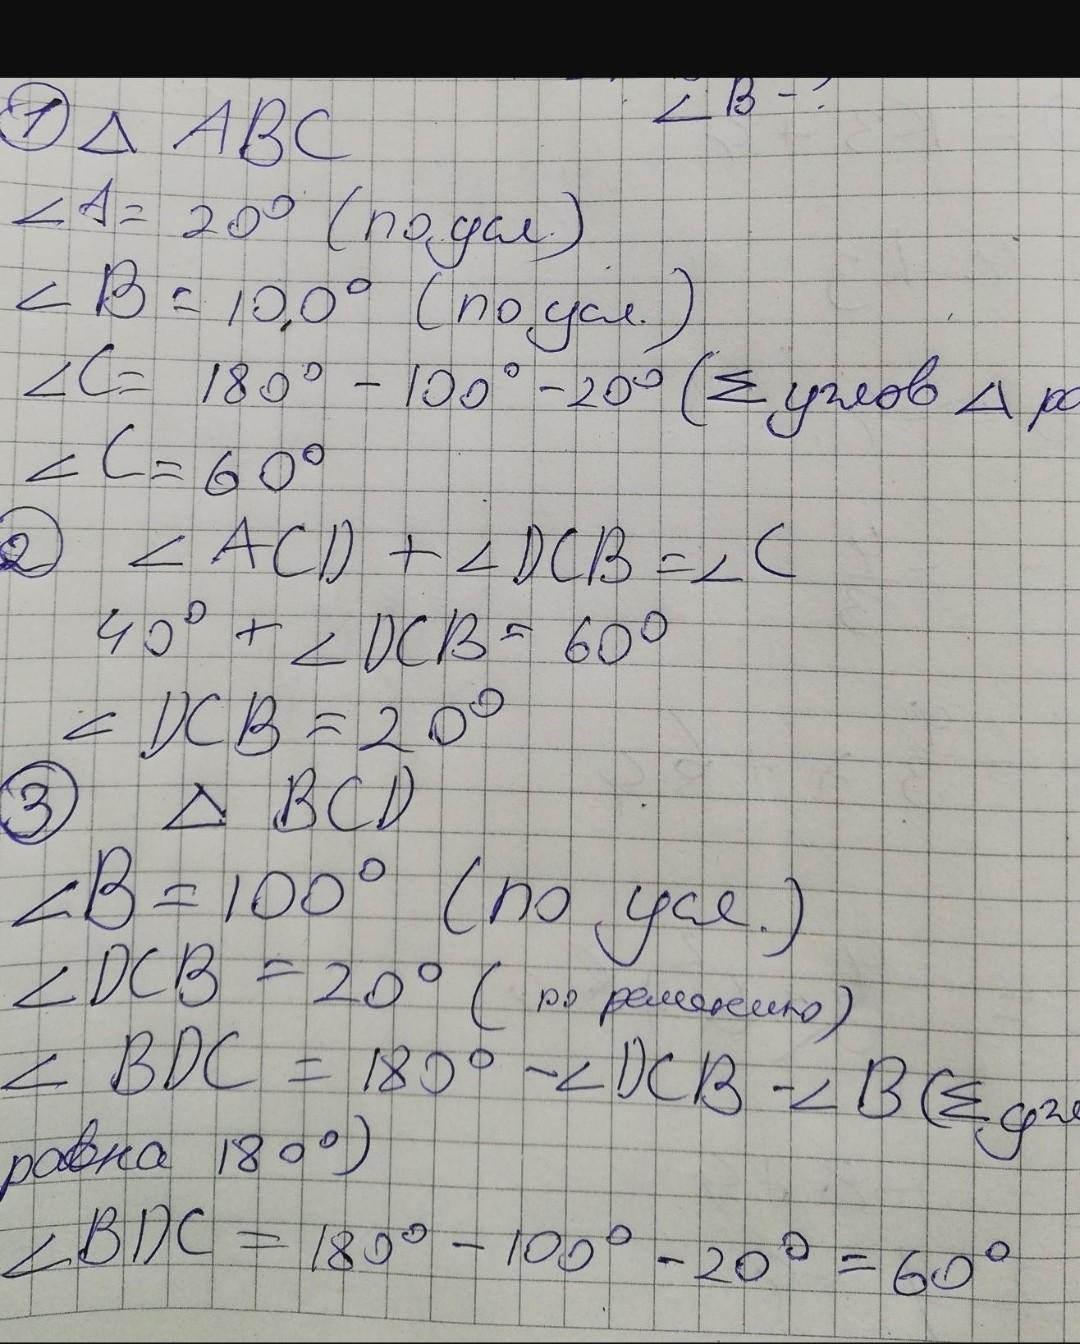 ∠B-?
① Δ ABC
∠A= 20° (по усл.)
∠B = 100° (по усл.)
∠C= 180° - 100° - 20° (Σ углов Δ ра
∠C=60°
② ∠ACD + ∠DCB = ∠C
40° + ∠DCB = 60°
∠DCB = 20°
③ Δ BCD
∠B = 100° (по усл.)
∠DCB = 20° (по решению)
∠BDC = 180° - ∠DCB - ∠B (Σ угл
равна 180°)
∠BDC = 180° - 100° - 20° = 60°